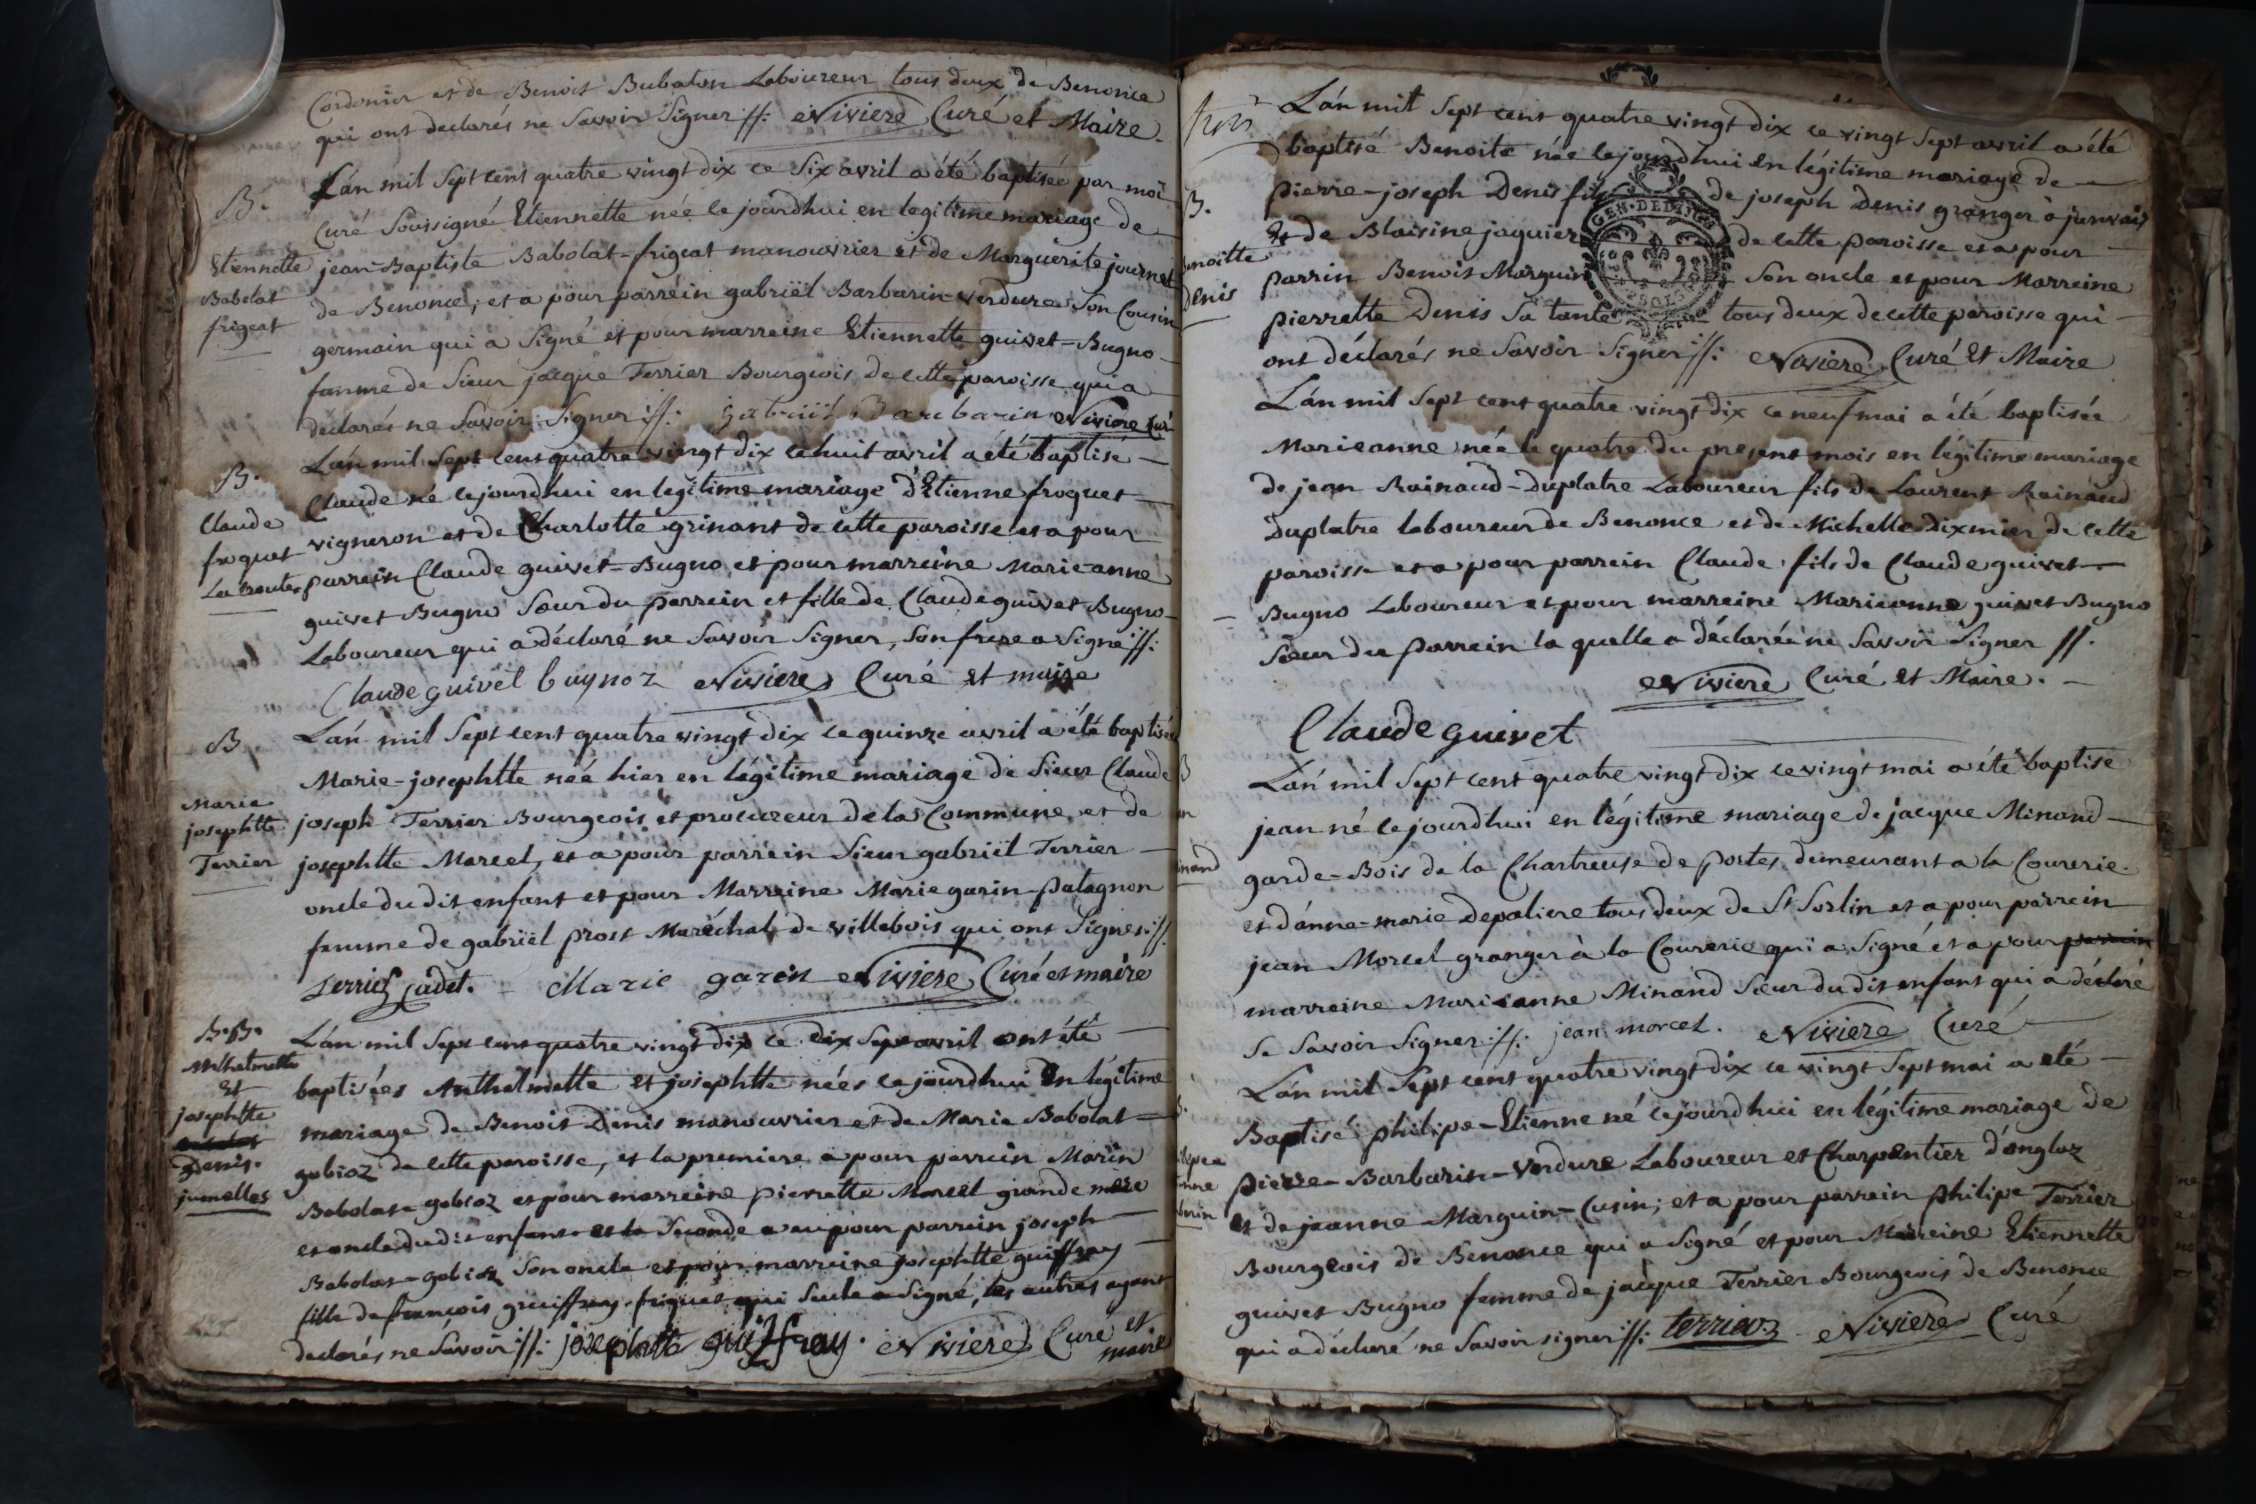 Cordonier et de Benoit Bubaton Laboureur tous deux de Benonce
qui ont declarés ne Savoir Signer //: Niviere Curé et Maire.
B.
L'an mil Sept cent quatre vingt dix ce Six avril a été baptisée par moi
Curé Soussigné Etiennette née le jourdhui en legitime mariage de
Etiennette
Babolat
frigeat
jean-Baptiste Babolat-frigeat manouvrier et de Marguerite journet
de Benonce; et a pour parrein gabriël Barbarin-verdure Son Cousin
germain qui a Signé et pour marreine Etiennette guivet=Bugno
femme de Sieur jacque Terrier Bourgeois de cette paroisse qui a
déclarés ne Savoir Signer //: gabriël Barbarin Niviere Curé
B.
Claude
froquet
L'an mil Sept cent quatre vingt dix ce huit avril a été baptisé
Claude né cejourdhui en legitime mariage d'Etienne froquet
vigneron et de Charlotte grinant de cette paroisse et a pour
parrein Claude guivet=Bugno et pour marreine Marie anne
guivet Bugno Sœur du parrein et fille de Claude guivet Bugno
Laboureur qui a déclaré ne Savoir Signer, Son frere a Signé //:
Claude guivet bugnoz Niviere Curé et maire
B.
Marie
josephtte
Terrier
L'an mil Sept cent quatre vingt dix ce quinze avril a été baptisée
Marie-josephtte née hier en légitime mariage de Sieur Claude
joseph Terrier Bourgeois et procureur de la Commune et de
josephtte Morcel, et a pour parrein Sieur gabriël Terrier
oncle du dit enfant et pour Marreine Marie garin-patagnon
femme de gabriël prost Maréchal de villebois qui ont Signés //:
terrier cadet. Marie garin Niviere Curé et maire
B. B.
Anthelmette
Et
josephtte
Denis.
jumelles
L'an mil Sept cent quatre vingt dix ce dix Sept avril ont été
baptisées Anthelmette et josephtte nées ce jourdhui En légitime
mariage de Benoit Denis manouvrier et de Marie Babolat=
gobioz de cette paroisse, et la premiere a pour parrein Marin
Babolat=gobioz et pour marreine pierrette Morcel grande mere
et oncle du dit enfant et la Seconde a eu pour parrein joseph
Babolat=gobioz Son oncle et pour marreine josephtte guiffray
fille de françois guiffray-friquet qui Seule a Signé, les autres ayant
declarés ne Savoir //: josephtte guiffray. Niviere Curé et
maire
L'an mil Sept cent quatre vingt dix ce vingt Sept avril a été
B.
Benoitte
Denis
baptisé Benoite née le jourdhui en légitime mariage de
pierre-joseph Denis fils de joseph Denis granger à junvais
et de Blaisine jaquier de cette paroisse et a pour
parrin Benoit Marguin Son oncle et pour Marreine
pierrette Denis Sa tante tous deux de cette paroisse qui
ont déclarés ne Savoir Signer //: Niviere Curé Et Maire
L'an mil Sept cent quatre vingt dix ce neuf mai a été baptisée
Marieanne née le quatre du present mois en légitime mariage
de jean Rainaud-Duplatre Laboureur fils de Laurent Rainaud
Duplatre laboureur de Benonce et de Michelle Dixmier de cette
paroisse et a pour parrein Claude fils de Claude guivet
Bugno Laboureur et pour marreine Marieanne guivet Bugno
Sœur du parrein la quelle a déclarée ne Savoir Signer //.
Niviere Curé Et Maire.
Claude guivet
L'an mil Sept cent quatre vingt dix ce vingt mai a été baptisé
jean né ce jourdhui en légitime mariage de jacque Minand
garde-Bois de la Chartreuse de portes demeurant a la Courerie
et d'anne-marie depaliere tous deux de St Sorlin et a pour parrein
jean Morcel granger à la Courerie qui a Signé et a pour parrein
marreine Marieanne Minand Sœur du dit enfant qui a déclaré
Se Savoir Signer //: jean morcel. Niviere Curé
L'an mil Sept cent quatre vingt dix ce vingt Sept mai a eté
Baptisé philipe-Etienne né cejourdhui en légitime mariage de
pierre-Barbarin-Verdure Laboureur et Charpentier d'ongloz
et de jeanne-Marguin-Cusin; et a pour parrein philipe Terrier
Bourgeois de Benonce qui a Signé et pour Marreine Etiennette
guivet Bugno femme de jacque Terrier Bourgeois de Benonce
qui a déclaré ne Savoir signer //: terrier Niviere Curé